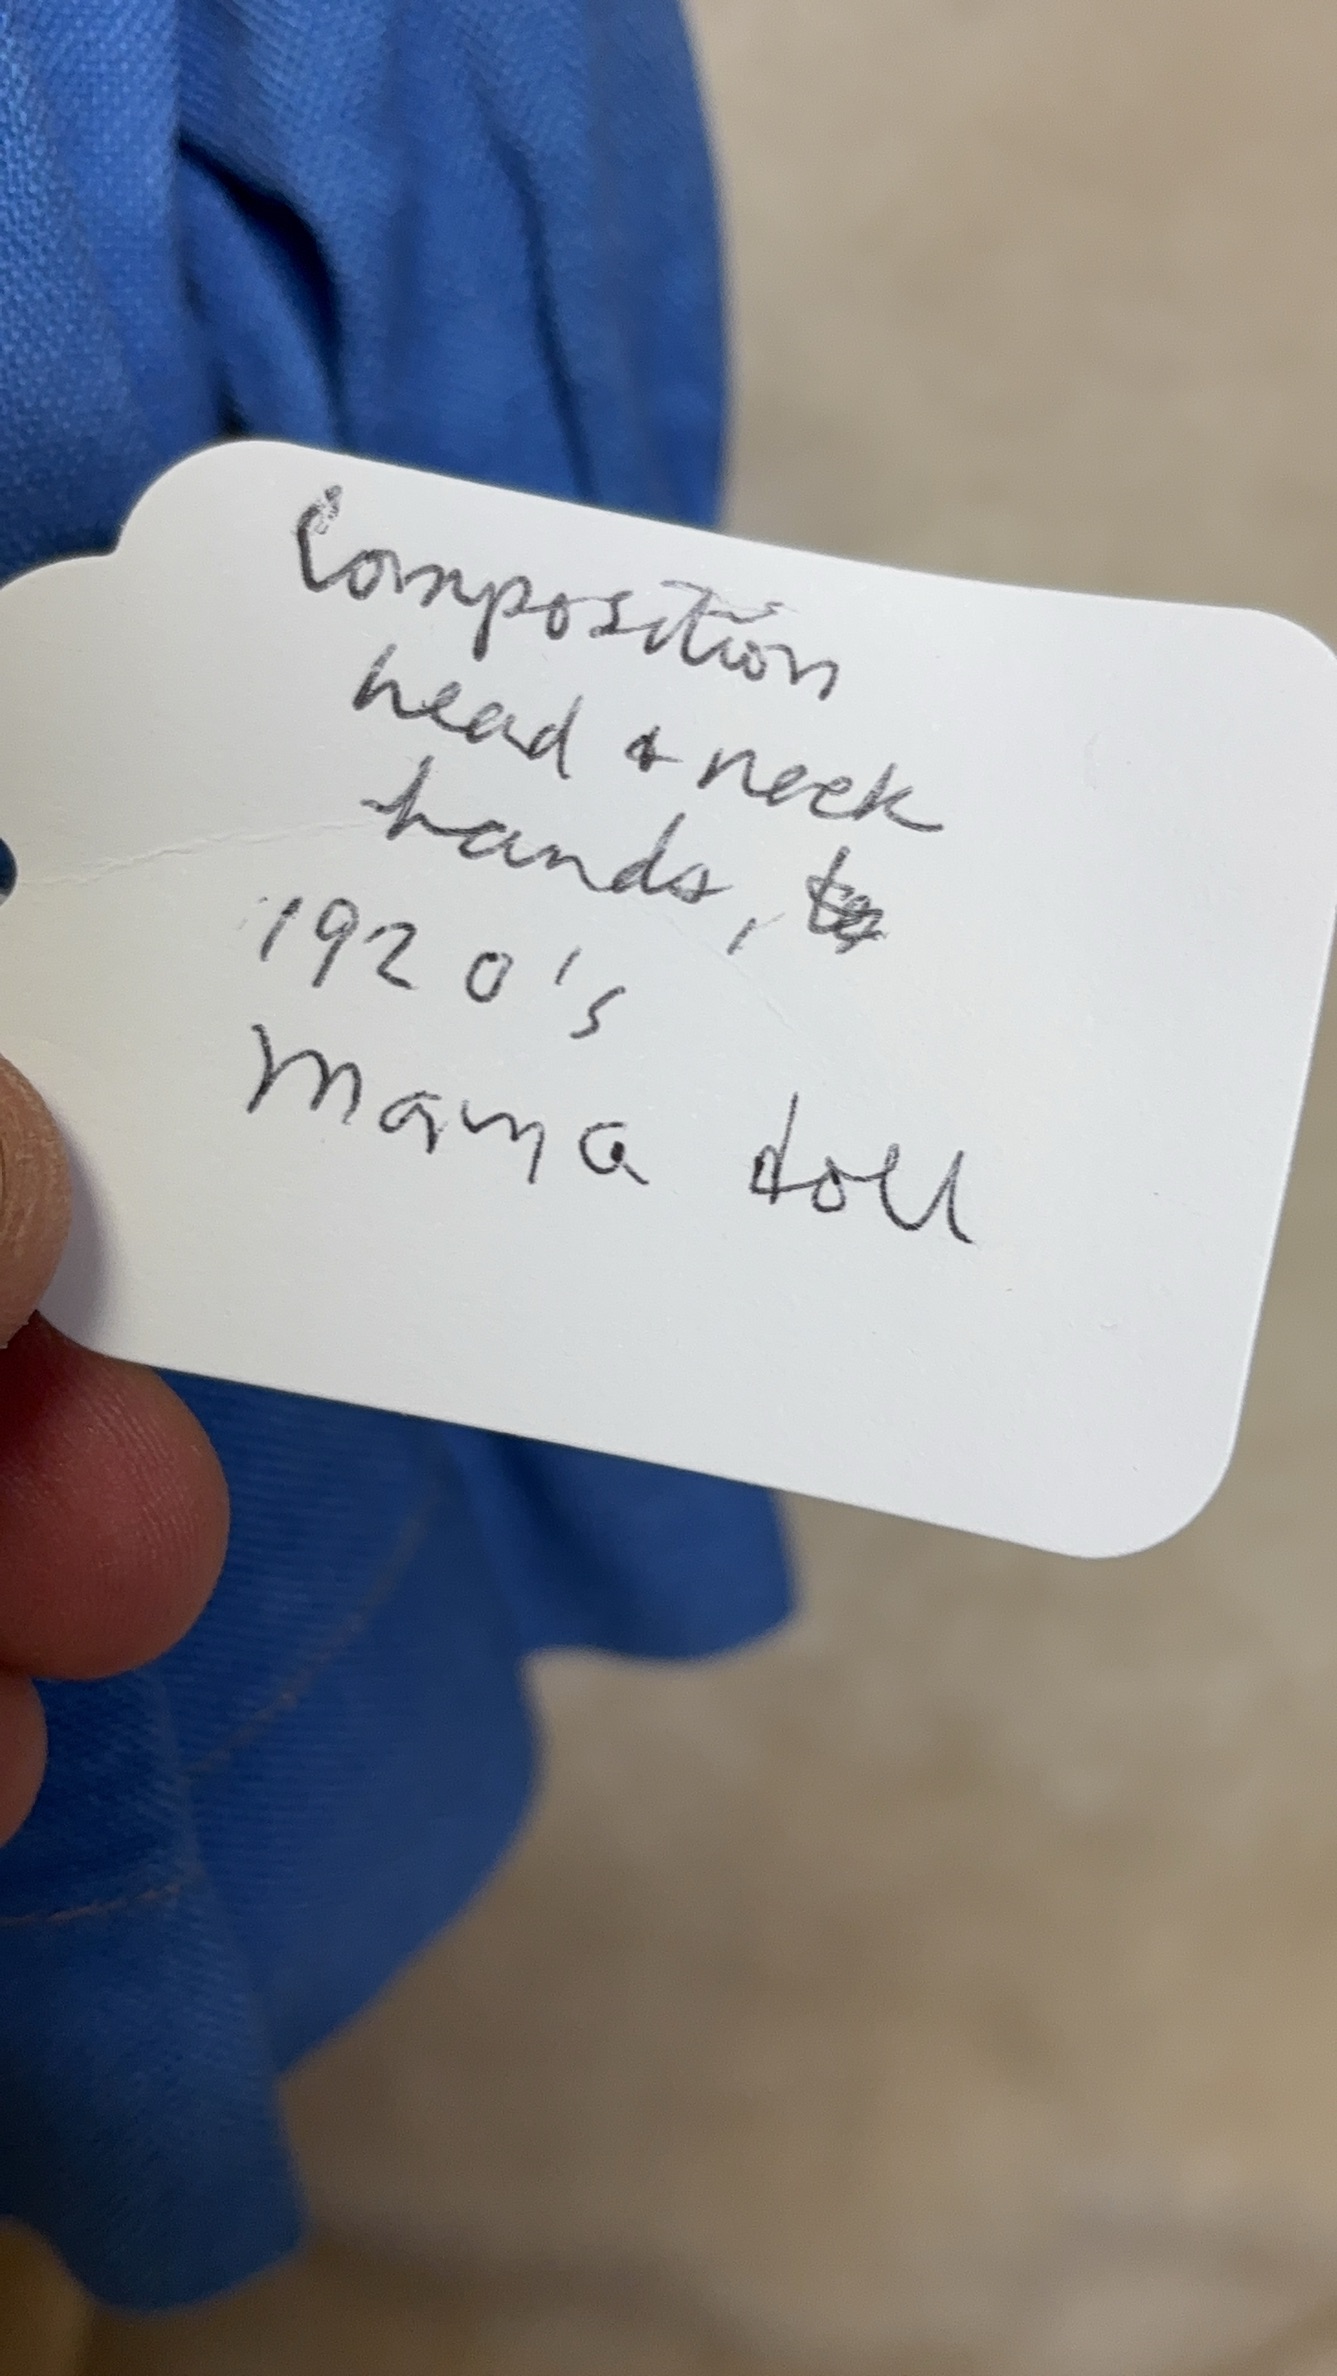 Composition
head & neck
hands,
1920's
Mama doll